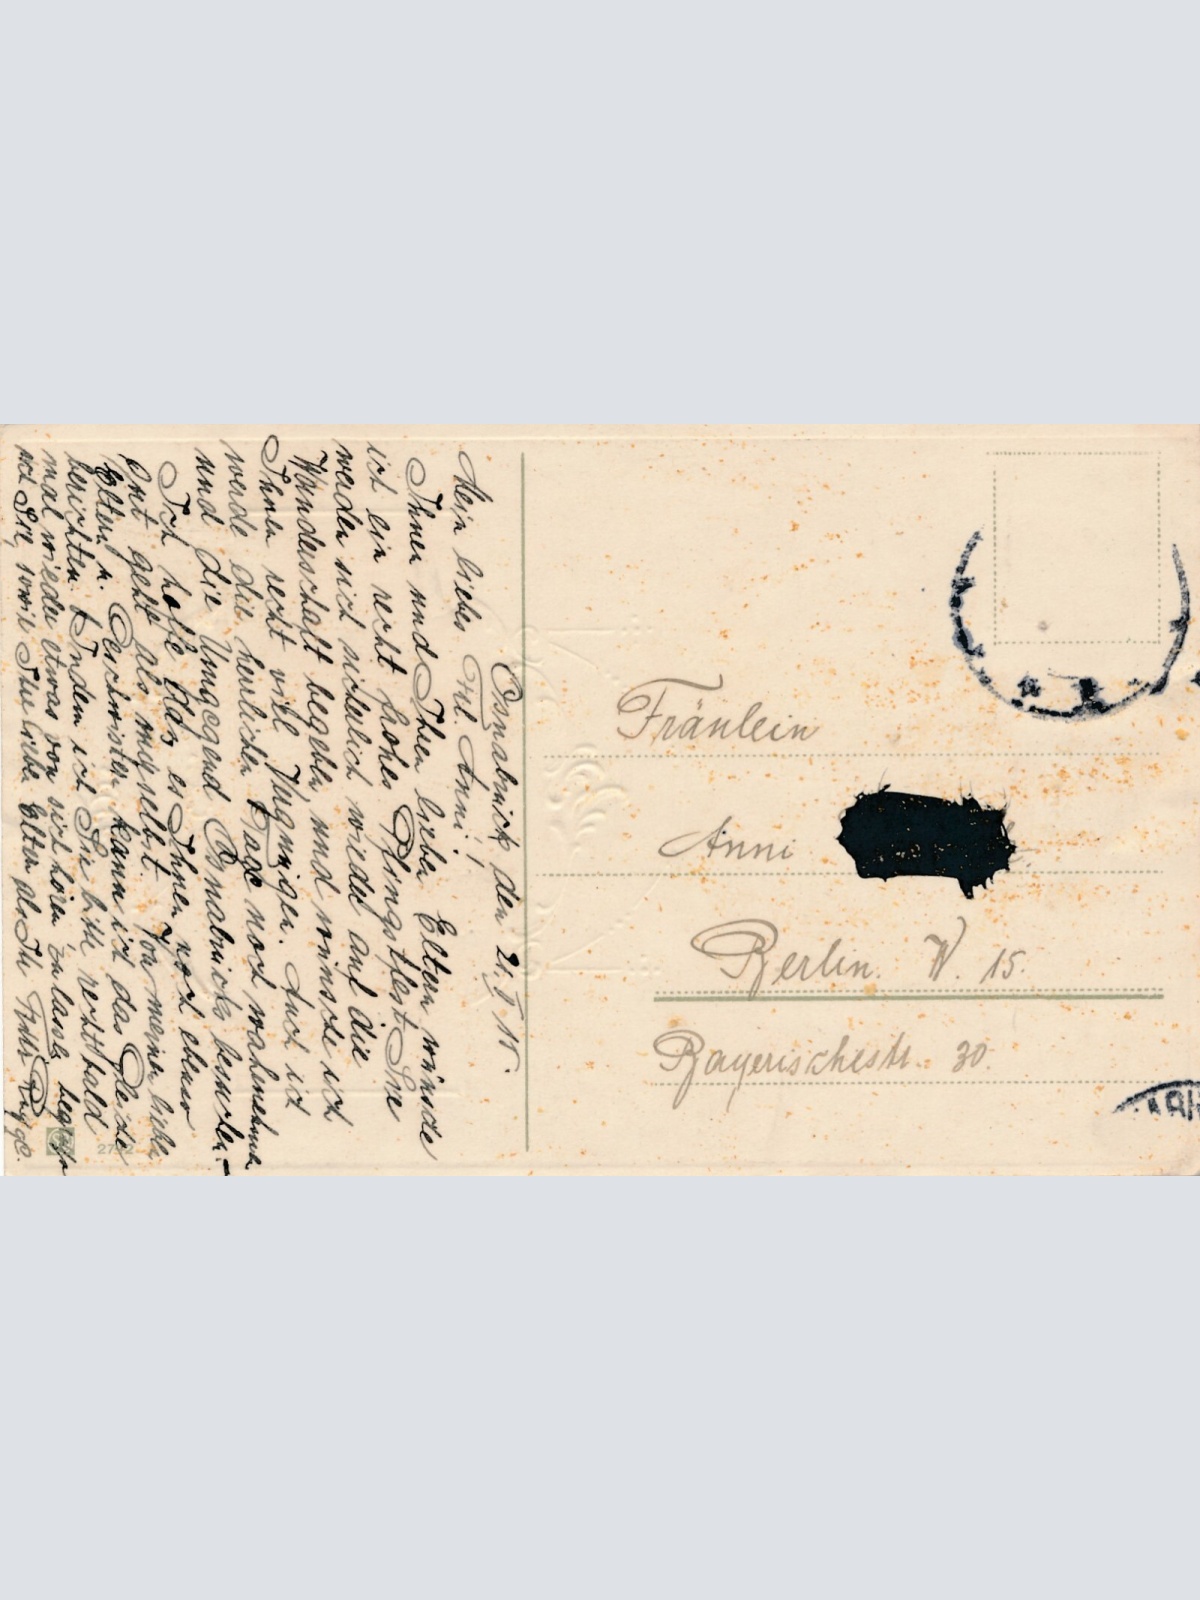 Osnabrück den 21.V 15.
Mein liebes Frl. Anni!
Ihnen und Ihren lieben Eltern wünsche
ich ein recht frohes Pfingstfest. Sie
werden sich sicherlich wieder auf die
Wanderschaft begeben, und wünsche ich
Ihnen recht viel Vergnügen. Auch ich
werde die herrlichen Tage noch wahrnehmen
und die Umgegend Osnabrücks bewundern.
Ich hoffe daß es Ihnen noch ebenso
gut geht als mir selbst. Von meinen lieben
Eltern u. Geschwistern kann ich das Gleiche
berichten. Indem ich Sie bitte recht bald
mal wieder etwas von sich hören zu lassen begrüße
ich Sie, sowie Ihre lieben Eltern als Ihr
Fräulein
Anni
Berlin. W. 15.
Bayerischestr. 30.